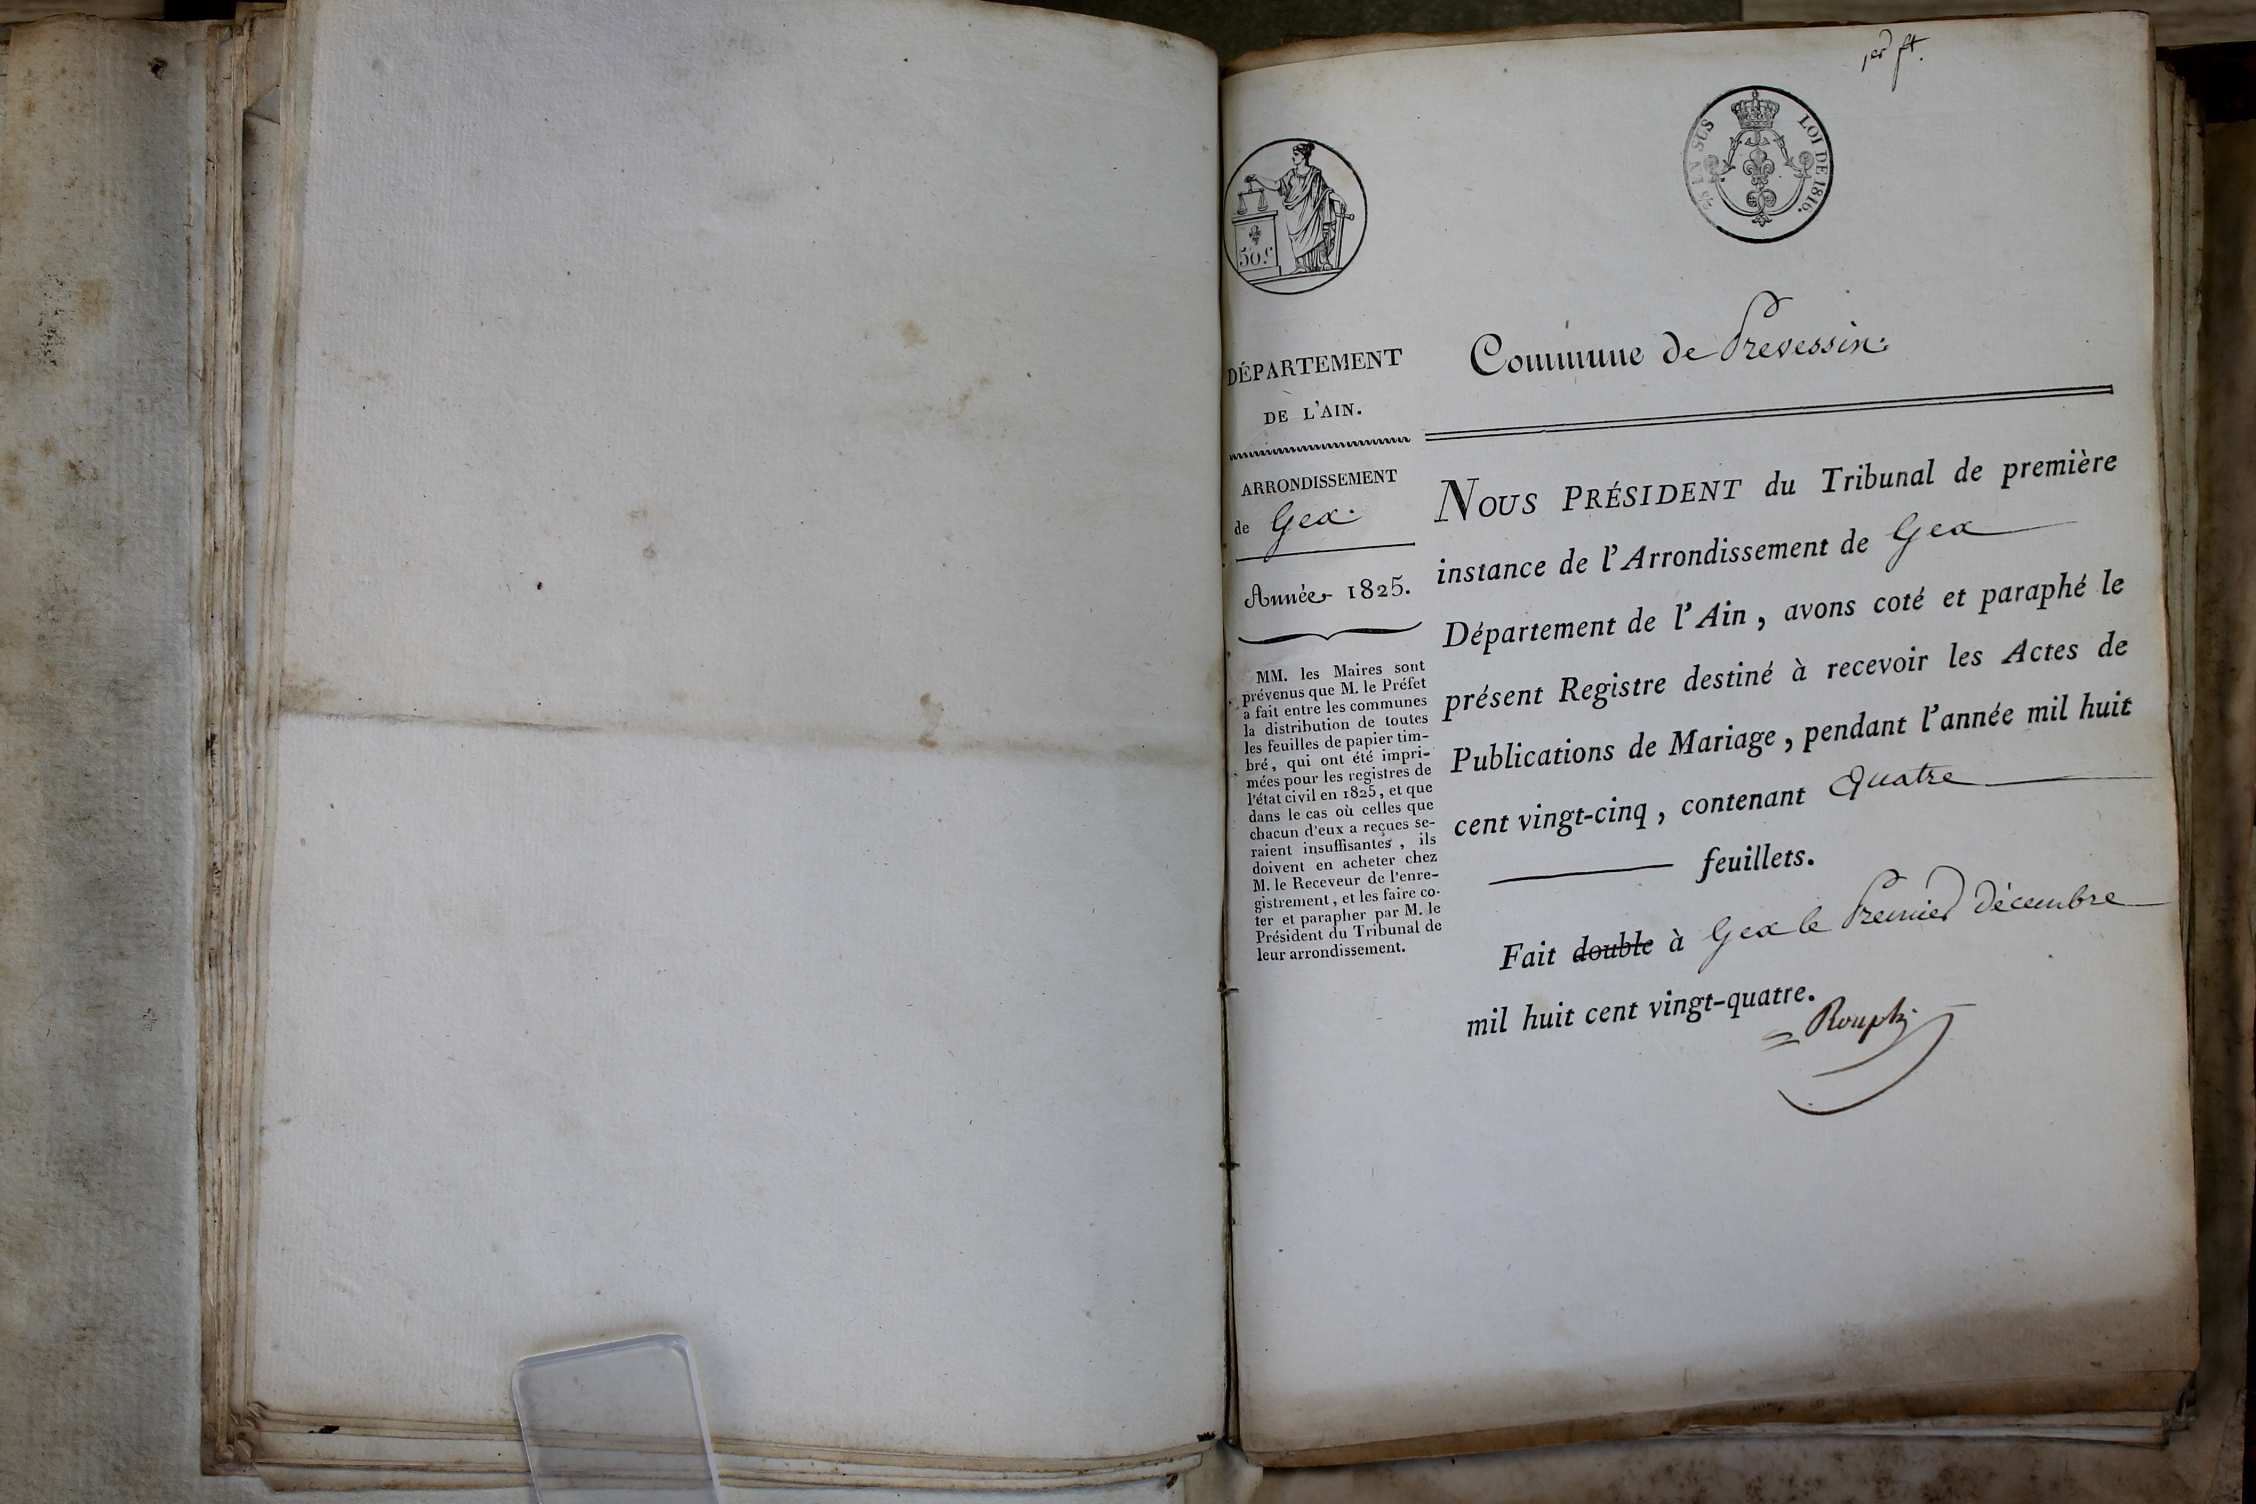 1er ft.
EN SUS
LOI DE 1816.
50 c
DÉPARTEMENT
DE L'AIN.
ARRONDISSEMENT
de Gex.
Année 1825.
MM. les Maires sont
prévenus que M. le Préfet
a fait entre les communes
la distribution de toutes
les feuilles de papier tim-
bré, qui ont été impri-
mées pour les registres de
l'état civil en 1825, et que
dans le cas où celles que
chacun d'eux a reçues se-
raient insuffisantes, ils
doivent en acheter chez
M. le Receveur de l'enre-
gistrement, et les faire co-
ter et parapher par M. le
Président du Tribunal de
leur arrondissement.
Commune de Prevessin.
NOUS PRÉSIDENT du Tribunal de première
instance de l'Arrondissement de Gex
Département de l'Ain, avons coté et paraphé le
présent Registre destiné à recevoir les Actes de
Publications de Mariage, pendant l'année mil huit
cent vingt-cinq, contenant Quatre
feuillets.
Fait double à Gex le Premier décembre
mil huit cent vingt-quatre.